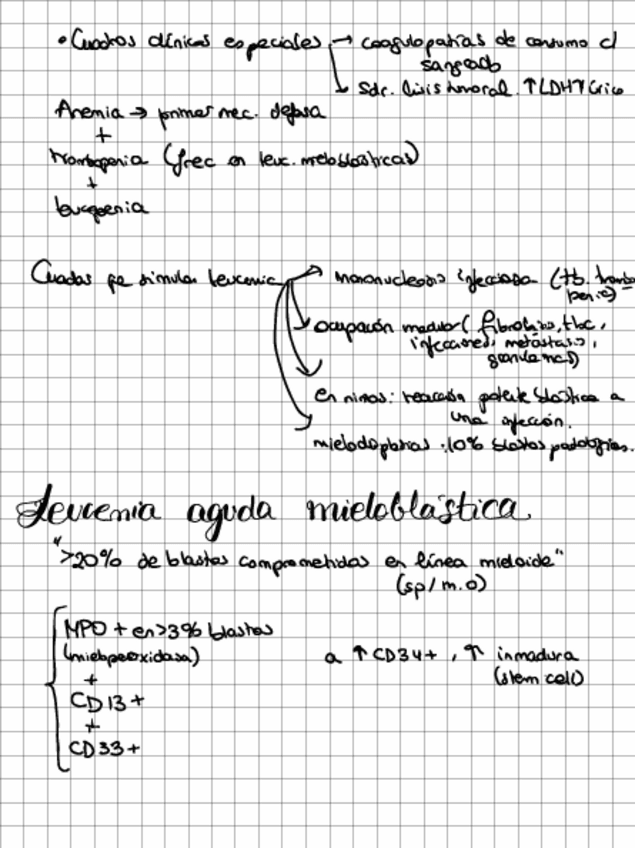 • Cuadros clínicos especiales → coagulopatías de consumo c/
sangrado
↳ Sdr. lisis tumoral. ↑LDH ↑úrico
Anemia → primer mec. defensa
+
trombopenia (frec en leuc. mieloblásticas)
+
leucopenia
Cuadros que simulan leucemia → mononucleosis infecciosa (tb. trombo
penia)
→ ocupación medular (fibrosis, tbc,
infecciones, metástasis,
granulomas)
→ en niños: reacción blástica a
una infección.
→ mielodisplasias : 10% blastos patológicos.
Leucemia aguda mieloblástica
">20% de blastos comprometidos en línea mieloide"
(sp/m.o)
MPO + en >3% blastos
(mieloperoxidasa)
a ↑CD34+, ↑ inmadura
(stem cell)
+
CD13+
+
CD33+